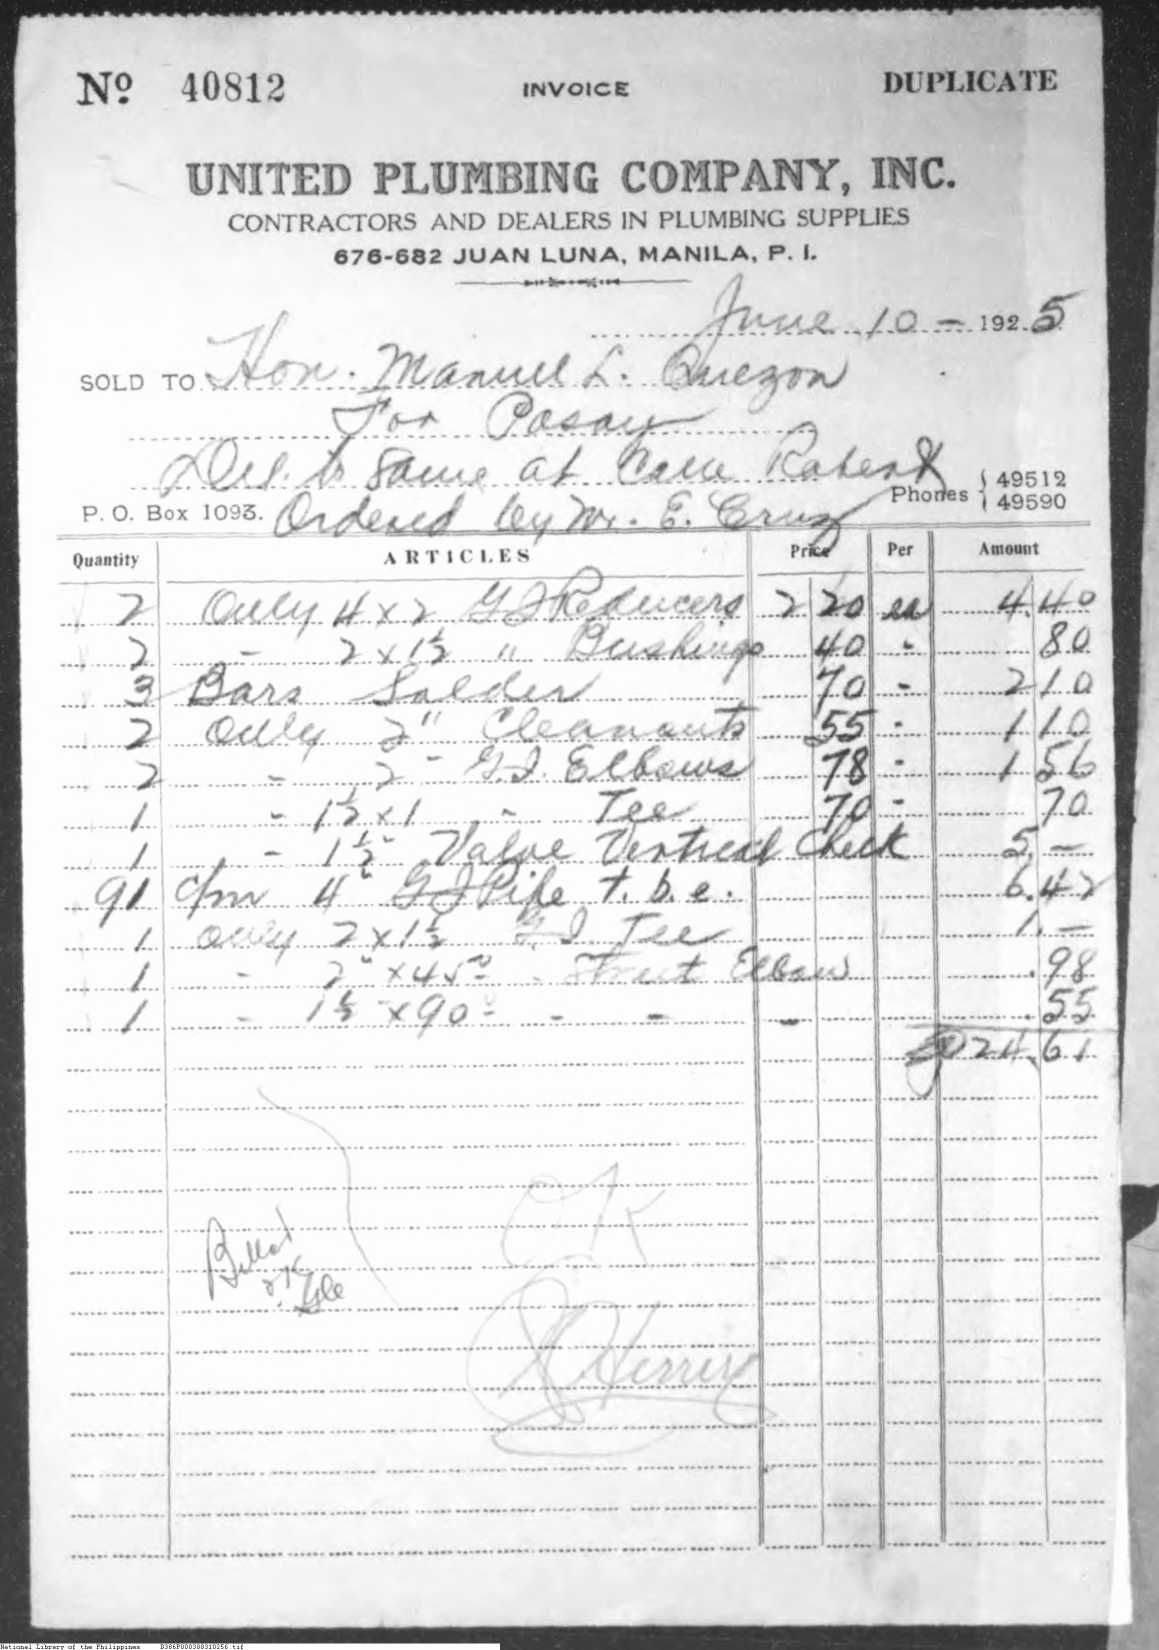 No. 40812 INVOICE DUPLICATE
UNITED PLUMBING COMPANY, INC.
CONTRACTORS AND DEALERS IN PLUMBING SUPPLIES
676-682 JUAN LUNA, MANILA, P. I.
June 10 - 1925
SOLD TO Hon. Manuel L. Quezon
For Pasay
Del. to same at
P. O. Box 1093. Ordered by Mr. E. Cruz Phones { 49512
{ 49590
Quantity ARTICLES Price Per Amount
2 Only 4 x 2 G I Reducers 2 20 ea 4.40
2 - 2 x 1½ " Bushings 40 - 80
3 Bars Solder 70 - 2 10
2 Only 2" Cleanouts 55 - 1 10
2 - 2" G.I. Elbows 78 - 1 56
1 - 1½ x 1 - Tee 70 - 70
1 - 1½" Valve Vertical Check 5. -
91 c/m 4" G I Pipe t. b. e. 6.42
1 Only 2 x 1½ G I Tee 1. -
1 - 2" x 45° - Street Elbow .98
1 - 1½ x 90° - - - .55
₱ 24.61
OK
National Library of the Philippines B386P000300310256.tif